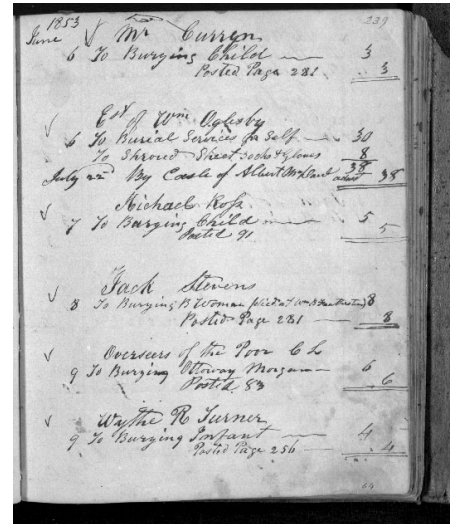 1853 239
June Mr Curryn
6 To Burying Child 3
Posted Page 281 3
Est of Wm Oglesby
6 To Burial Services for Self 30
To Shroud Sheet Socks & Gloves 8
38
July 22d By Cash of Albert 38
Michael Ross
7 To Burying Child 5
Posted 91 5
Jack Stevens
8 To Burying B Woman 8
Posted Page 281 8
Overseers of the Poor C L
9 To Burying Ottoway Morgan 6
Posted 83 6
Wythe R Turner
9 To Burying Infant 4
Posted Page 256 4